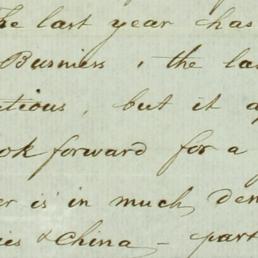 The last year has
Business, the la
tious, but it a
ook forward for a
er is in much dem
ies & China – part